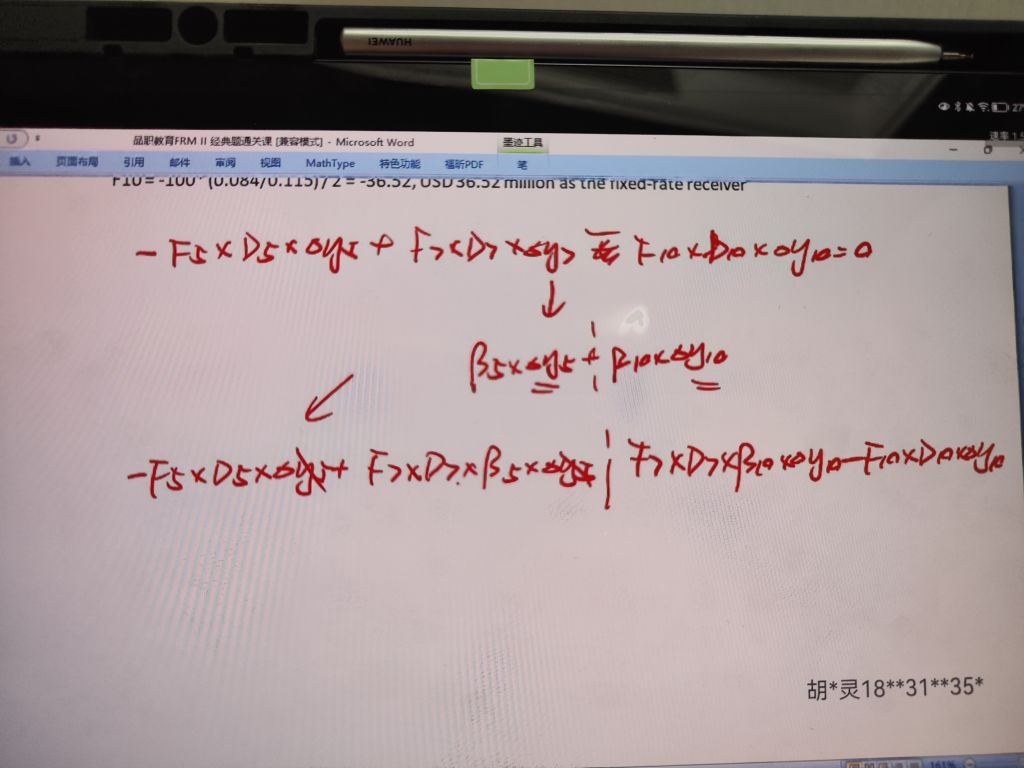 HUAWEI
27
速率 1.5
品职教育FRM II 经典题通关课 [兼容模式] - Microsoft Word
墨迹工具
插入 页面布局 引用 邮件 审阅 视图 MathType 特色功能 福昕PDF 笔
F10 = -100* (0.084/0.115)/ 2 = -36.52, USD 36.52 million as the fixed-rate receiver
-F5×D5×Δy5 + F7×D7×Δy7 - F10×D10×Δy10=0
↓
β5×Δy5 + β10×Δy10
-F5×D5×Δy5+ F7×D7×β5×Δy5 | F7×D7×β10×Δy10-F10×D10×Δy10
胡*灵18**31**35*
161%